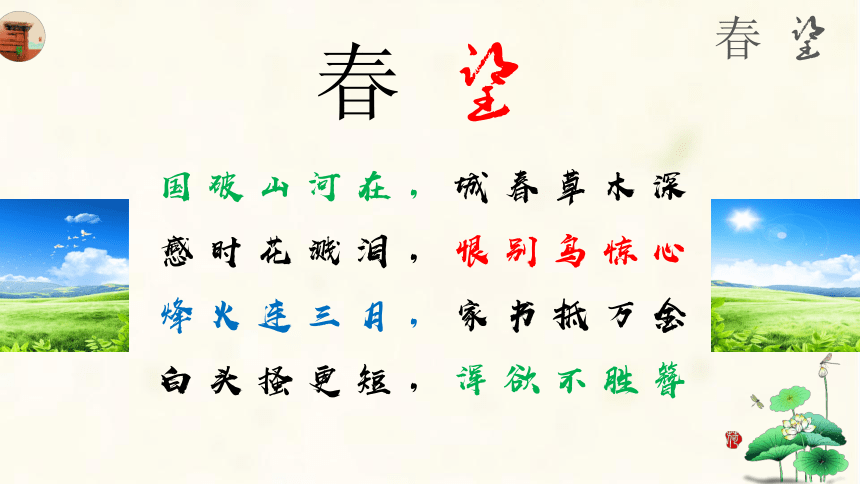 春 望
春 望
国破山河在，城春草木深
感时花溅泪，恨别鸟惊心
烽火连三月，家书抵万金
白头搔更短，浑欲不胜簪